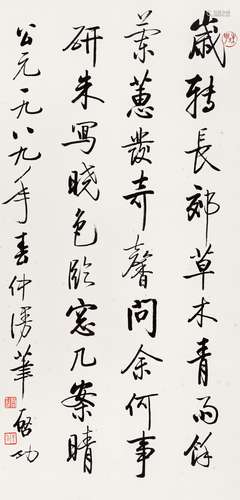 歲轉長郊草木青雨餘
蘭蕙發奇馨問余何事
研朱寫曉色臨窗几案晴
公元一九八九年春仲漫筆 啟功